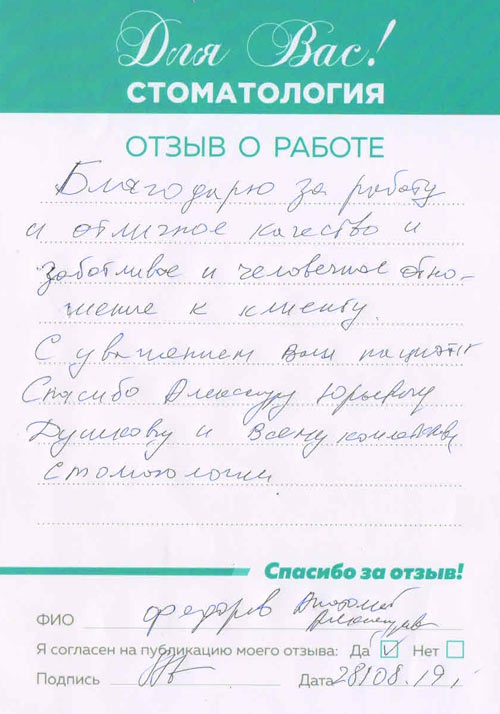 Для Вас!
СТОМАТОЛОГИЯ
ОТЗЫВ О РАБОТЕ
Благодарю за работу
и отличное качество и
заботливое и человечное отно-
шение к клиенту.
С уважением Ваш пациент
Спасибо Александру Юрьевичу
Душкову и Всему коллективу
Стоматологии
Спасибо за отзыв!
ФИО Федоров Анатолий
Я согласен на публикацию моего отзыва: Да ☑ Нет ☐
Подпись Дата 28/08.19г